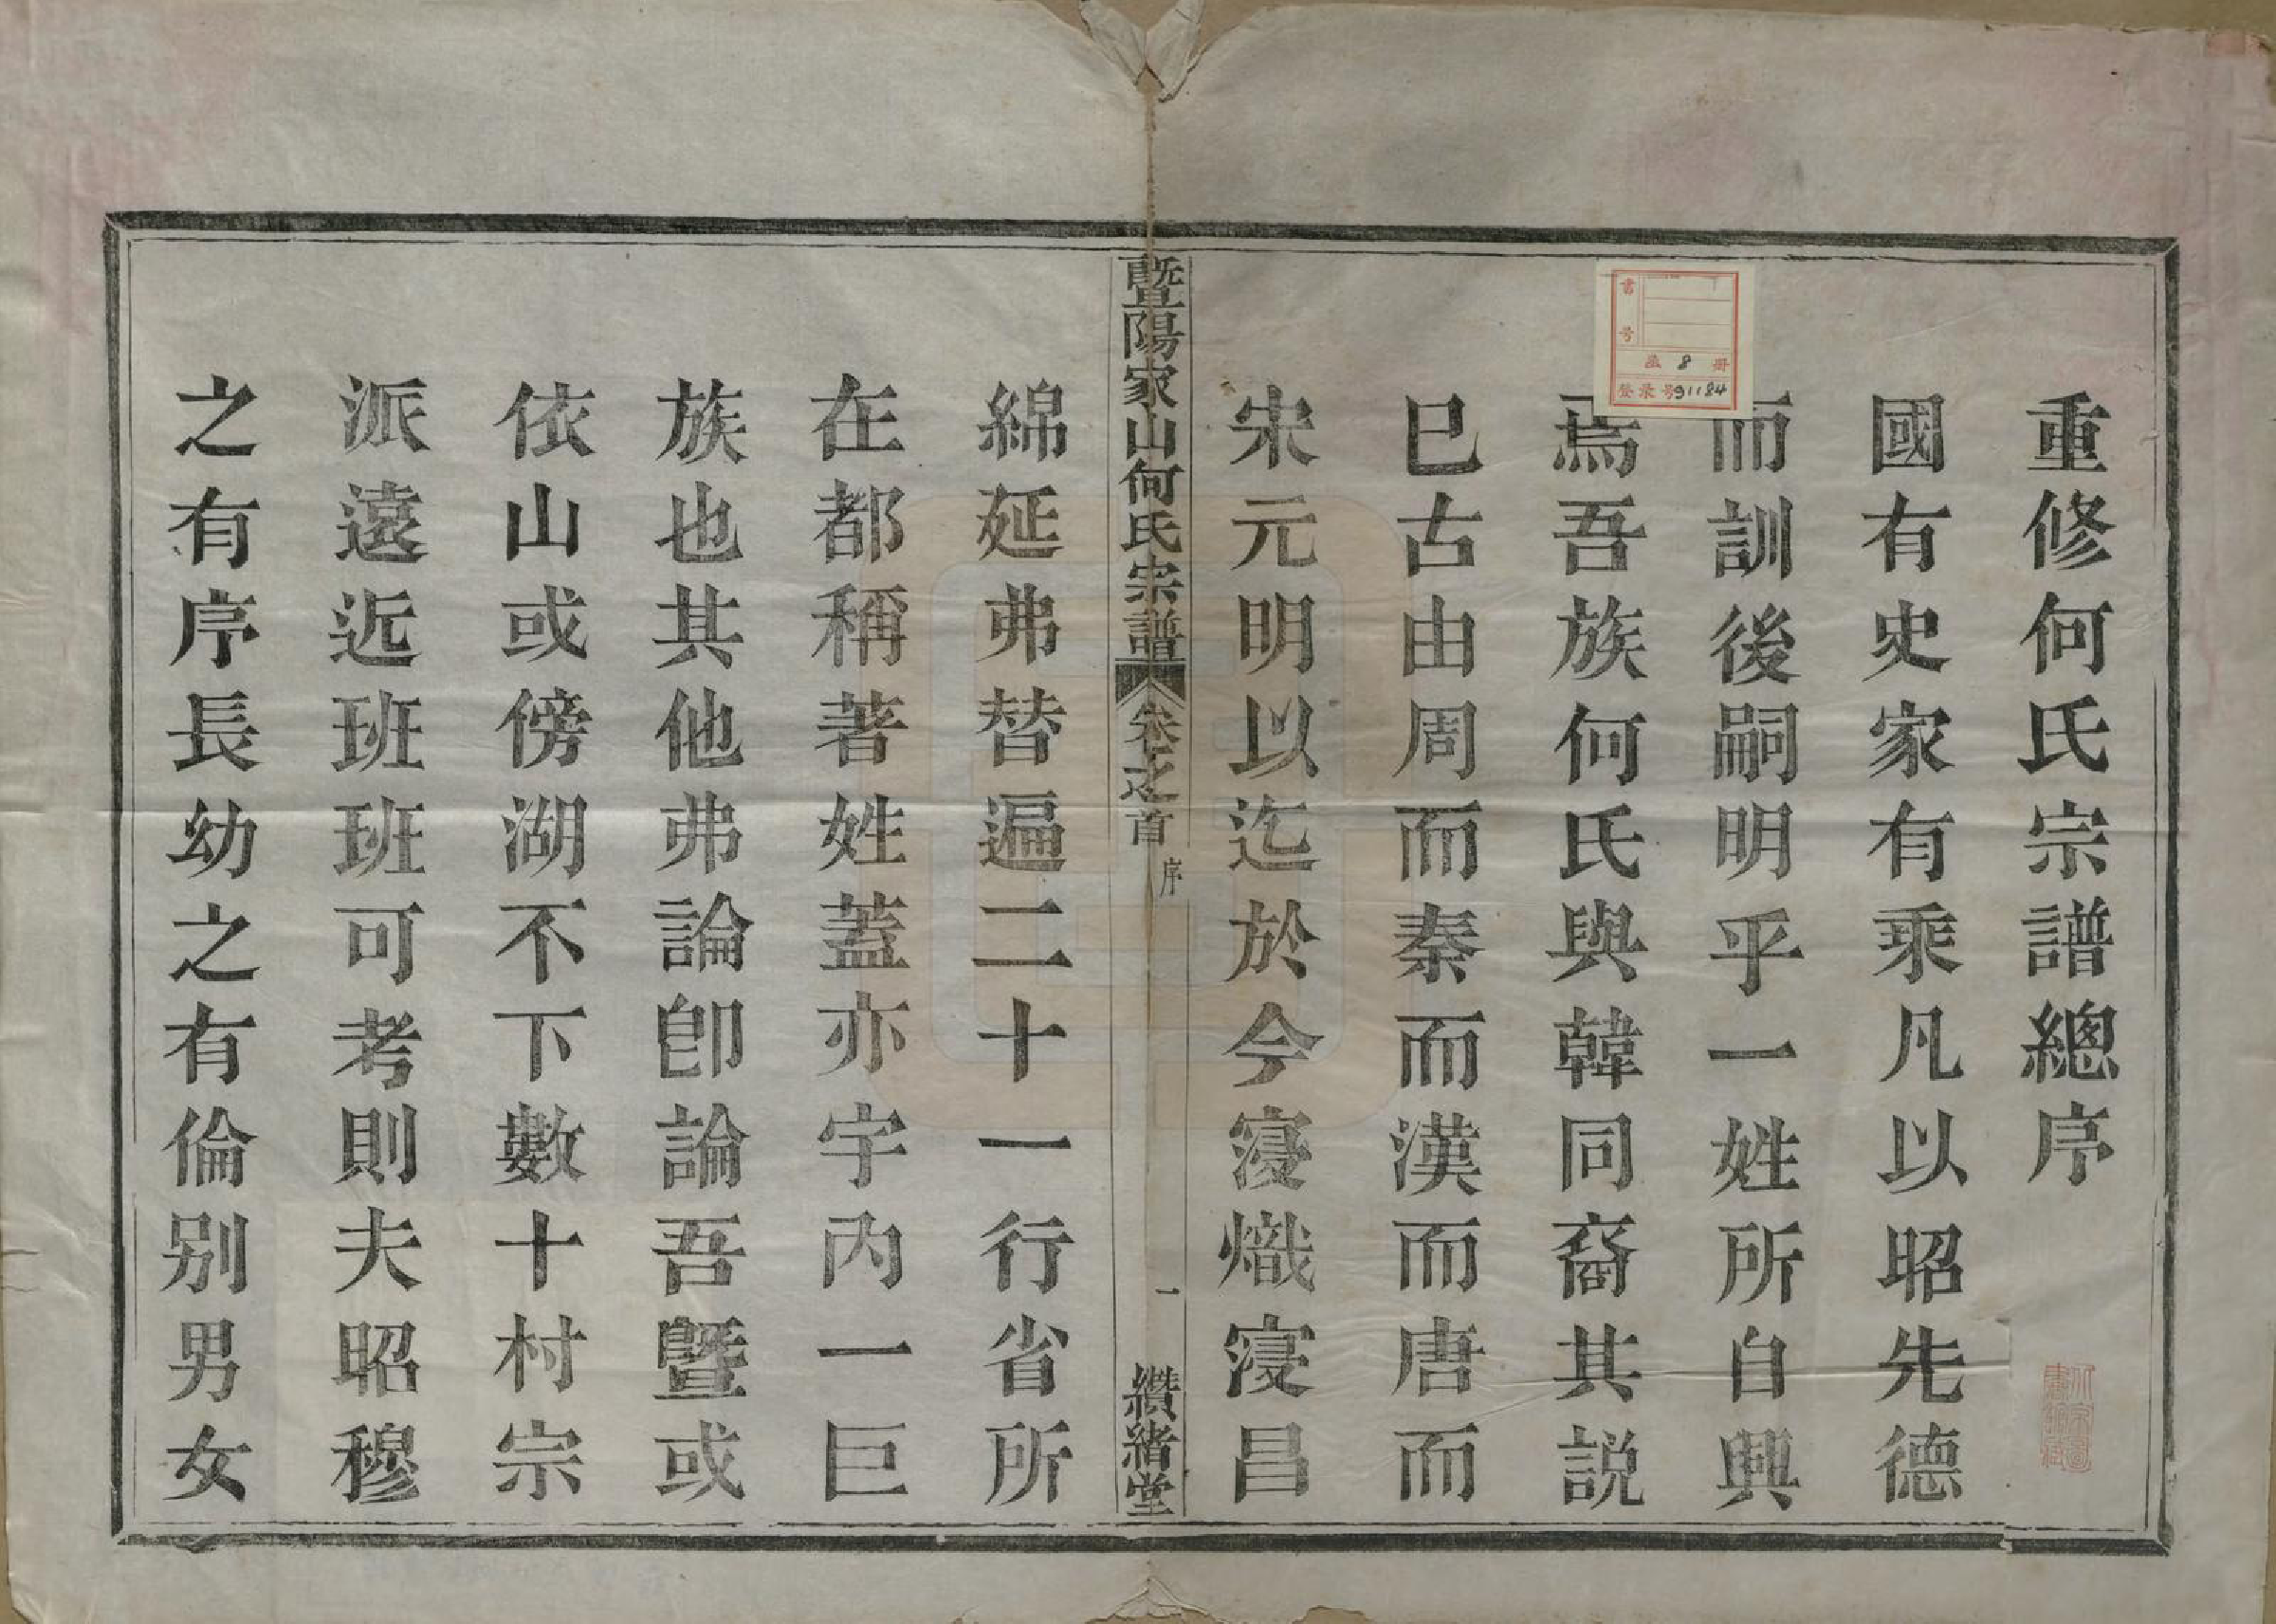 重修何氏宗譜總序
國有史家有乘凡以昭先德
而訓後嗣明乎一姓所自興
焉吾族何氏與韓同裔其説
巳古由周而秦而漢而唐而
宋元明以迄於今寖熾寖昌
暨陽家山何氏宗譜 卷之首 序 一 纘緒堂
綿延弗替遍二十一行省所
在都稱著姓蓋亦宇內一巨
族也其他弗論卽論吾暨或
依山或傍湖不下數十村宗
派遠近班班可考則夫昭穆
之有序長幼之有倫别男女
書号
函 8 册
登录号 91184